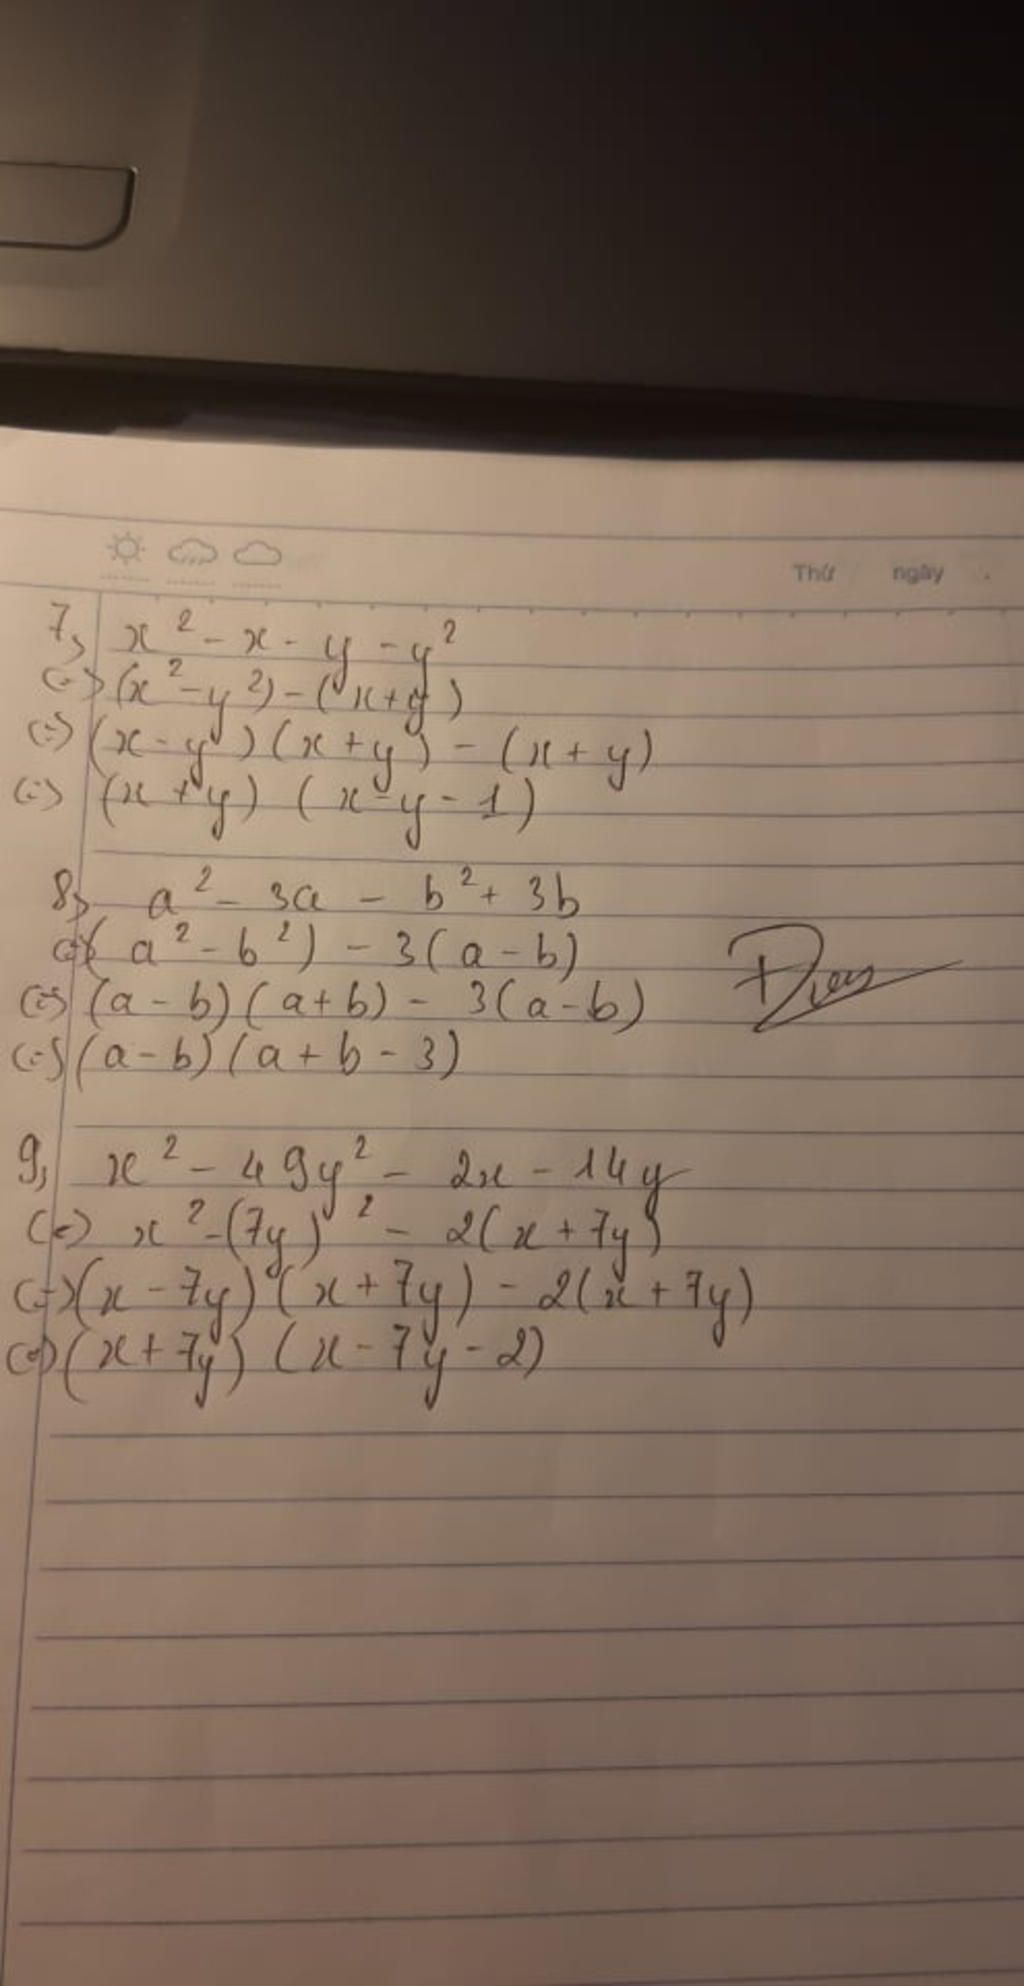 Thứ ngày
7, x² - x - y - y²
(=) (x² - y²) - (x + y)
(=) (x - y) (x + y) - (x + y)
(=) (x + y) (x - y - 1)
8, a² - 3a - b² + 3b
(=) (a² - b²) - 3(a - b)
(=) (a - b) (a + b) - 3(a - b)
(=) (a - b) (a + b - 3)
9, x² - 49y² - 2x - 14y
(=) x² - (7y)² - 2(x + 7y)
(=) (x - 7y) (x + 7y) - 2(x + 7y)
(=) (x + 7y) (x - 7y - 2)